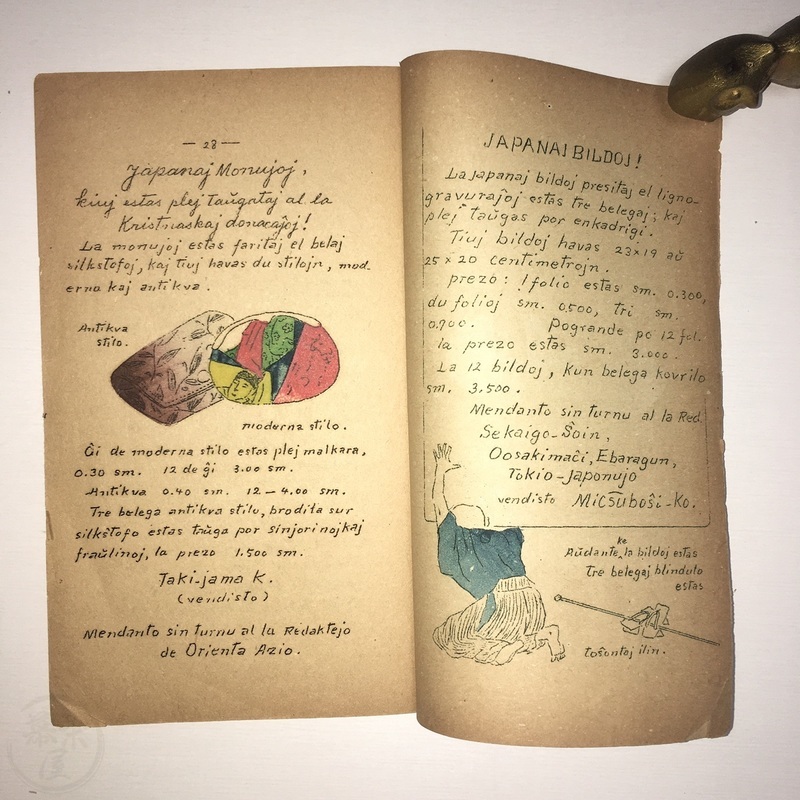 — 28 —
Japanaj Monujoj,
kiuj estas plej taŭgataj al la
Kristnaskaj donacaĵoj!
La monujoj estas faritaj el belaj
silkŝtofoj, kaj tiuj havas du stilojn, mod-
erna kaj antikva.
Antikva
stilo.
moderna stilo.
Ĝi de moderna stilo estas plej malkara,
0.30 sm. 12 de ĝi 3.00 sm.
Antikva 0.40 sm. 12 — 4.00 sm.
Tre belega antikva stilo, brodita sur
silkŝtofo estas taŭga por sinjorinoj kaj
fraŭlinoj, la prezo 1.500 sm.
Taki-jama K.
(vendisto)
Mendanto sin turnu al la Redaktejo
de Orienta Azio.
JAPANAJ BILDOJ!
La japanaj bildoj presitaj el ligno-
gravuraĵoj estas tre belegaj; kaj
plej taŭgas por enkadrigi.
Tiuj bildoj havas 23×19 aŭ
25×20 centimetrojn.
prezo: 1 folio estas sm. 0.300,
du folioj sm. 0.500, tri sm.
0.700. Pogrande po 12 fol.
la prezo estas sm. 3.000.
La 12 bildoj, kun belega kovrilo
sm. 3.500.
Mendanto sin turnu al la Red.
Sekaigo-Ŝoin,
Oosakimaĉi, Ebaragun,
Tokio-Japonujo
vendisto Micŝuboŝi-Ko.
Aŭdante, ke la bildoj estas
Tre belegaj blindulo
estas